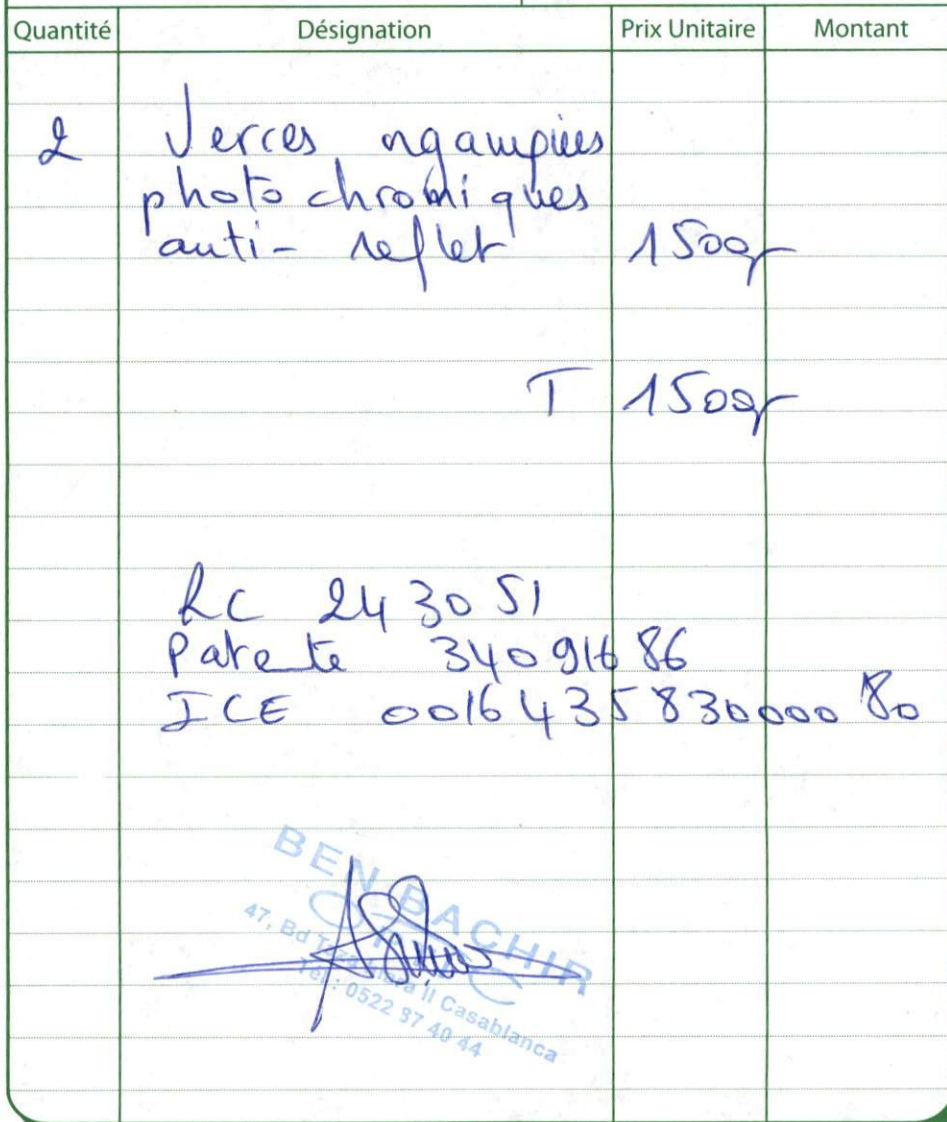 Quantité Désignation Prix Unitaire Montant
2 Verres
photochromiques
anti-reflet 1500,-
T 1500,-
RC 243051
Patente 34091686
ICE 001643583000080
BEN BACHIR
47, Bd Casablanca
Tél : 0522 37 40 44